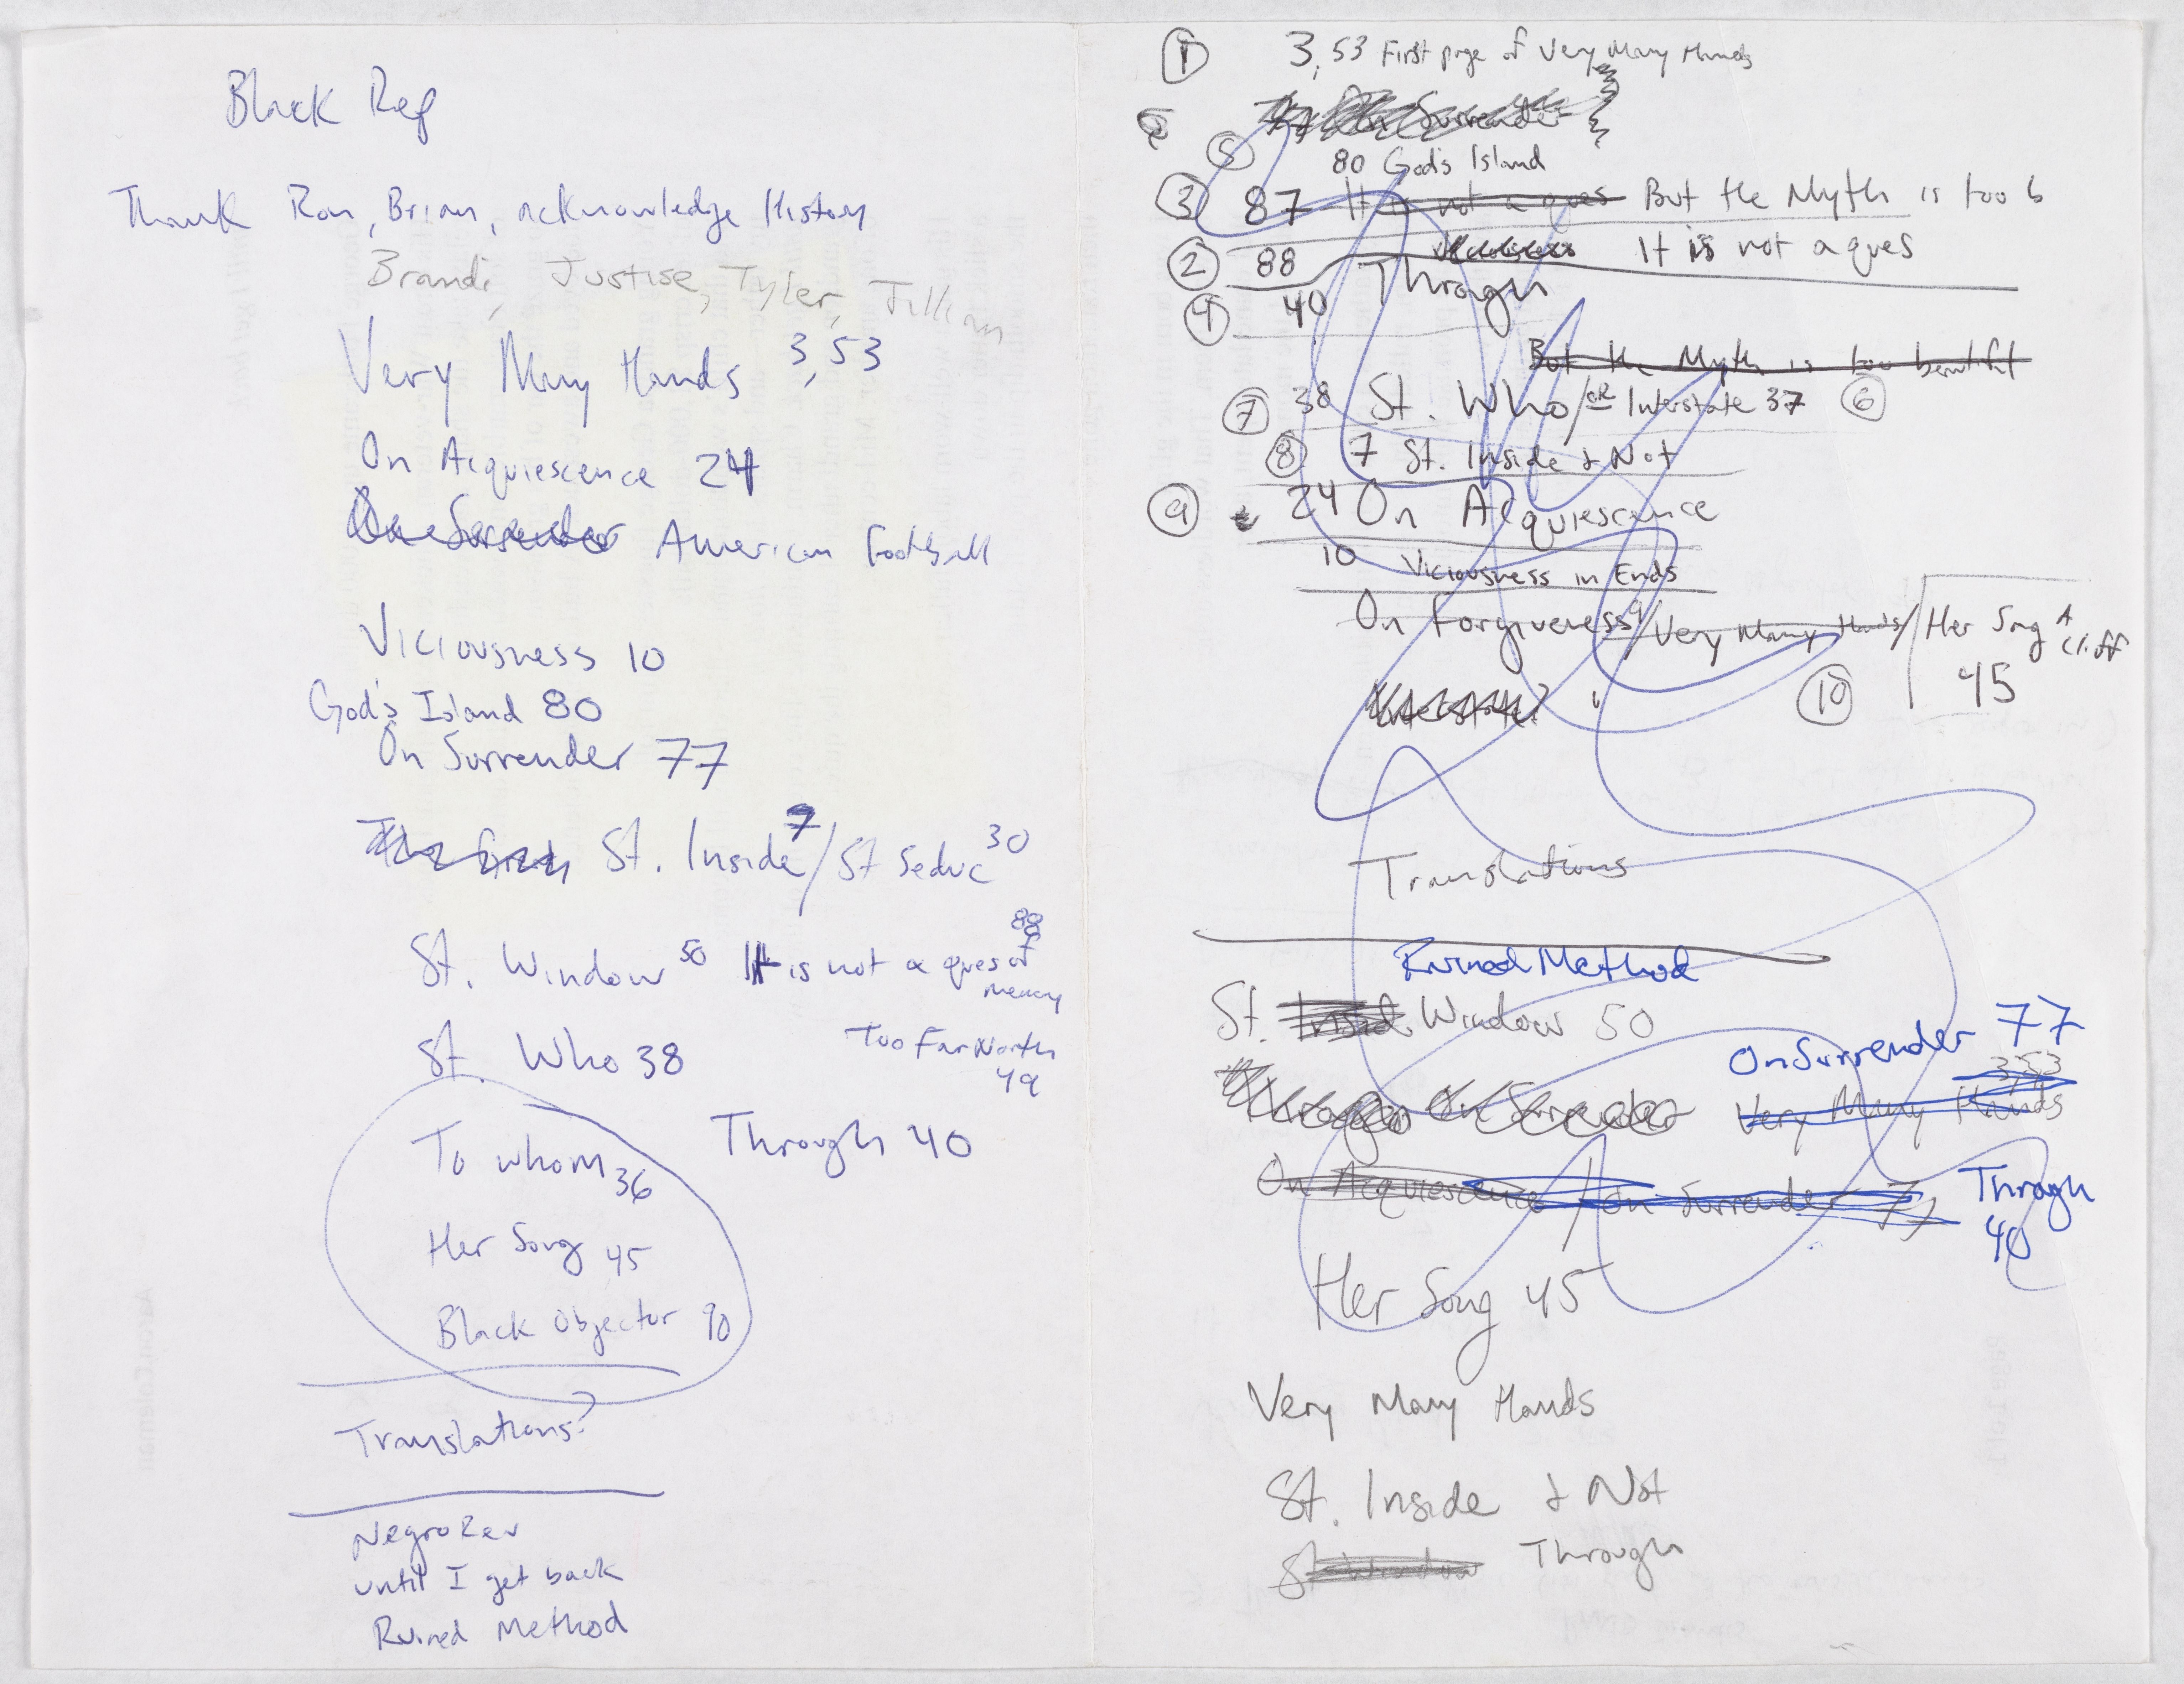 Black Rep
Thank Ron, Brian, acknowledge History
Brandi, Justise, Tyler, Jillian
Very Many Hands 3, 53
On Acquiescence 24
On Surrender American Football
Viciousness 10
God's Island 80
On Surrender 77
St. Inside 7 / St Seduc 30
St. Window 50 It is not a ques of mercy 88
St. Who 38 Too Far North 49
To whom 36 Through 40
Her Song 45
Black Objector 90
Translations?
Negro Rev
until I get back
Ruined Method
1 3, 53 First page of Very Many Hands
2 77 On Surrender
5 80 God's Island
3 87 It is not a ques But the Myth is too b
2 88 It is not a ques
4 40 Through
But the Myth is too beautiful
7 38 St. Who / OR Interstate 37 6
8 7 St. Inside & Not
9 24 On Acquiescence
10 Viciousness in Ends
On Forgiveness / Very Many Hands / Her Song A Cliff
Interstate? 10 45
Translations
Ruined Method
St. Inside Window 50
On Surrender 77
3,53
Through On Surrender Very Many Hands
On Acquiescence / On Surrender 77 Through
40
Her Song 45
Very Many Hands
St. Inside & Not
St Window Through